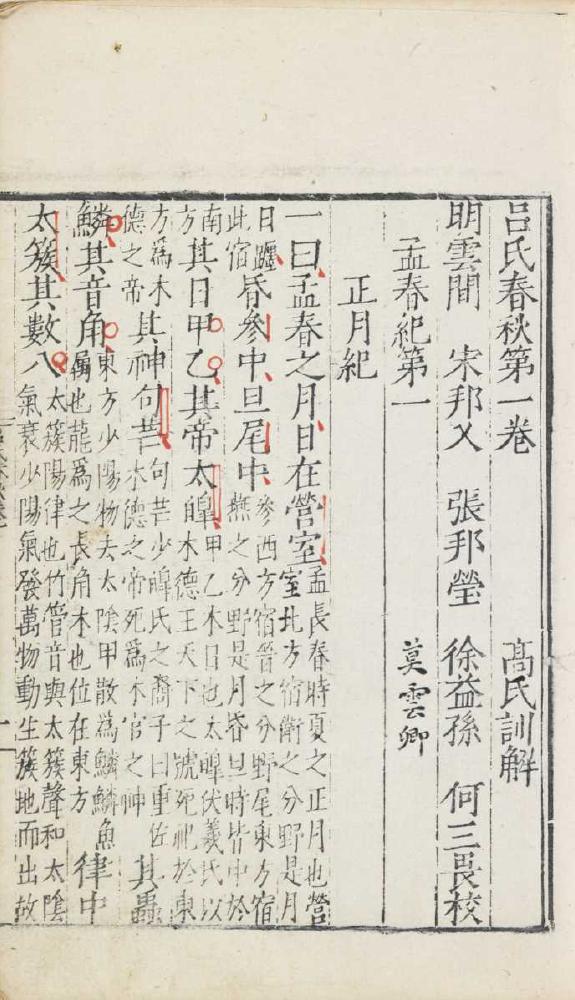 呂氏春秋第一卷 髙氏訓解
明雲間 宋邦乂 張邦瑩 徐益孫 何三畏校
孟春紀第一 莫雲卿
正月紀
一曰孟春之月日在營室孟長春時夏之正月也營室北方宿衛之分野是月
日躔此宿昏參中旦尾中參西方宿晉之分野尾東方宿燕之分野是月昏旦時皆中於
南方其日甲乙其帝太皥甲乙木日也太皥伏羲氏以木德王天下之號死祀於東
方爲木德之帝其神句芒句芒少皥氏之裔子曰重佐木德之帝死爲木官之神其蟲
鱗其音角東方少陽物去太陰甲散爲鱗鱗魚屬也龍爲之長角木也位在東方律中
太簇其數八太簇陽律也竹管音與太簇聲和太陰氣衰少陽氣發萬物動生簇地而出故